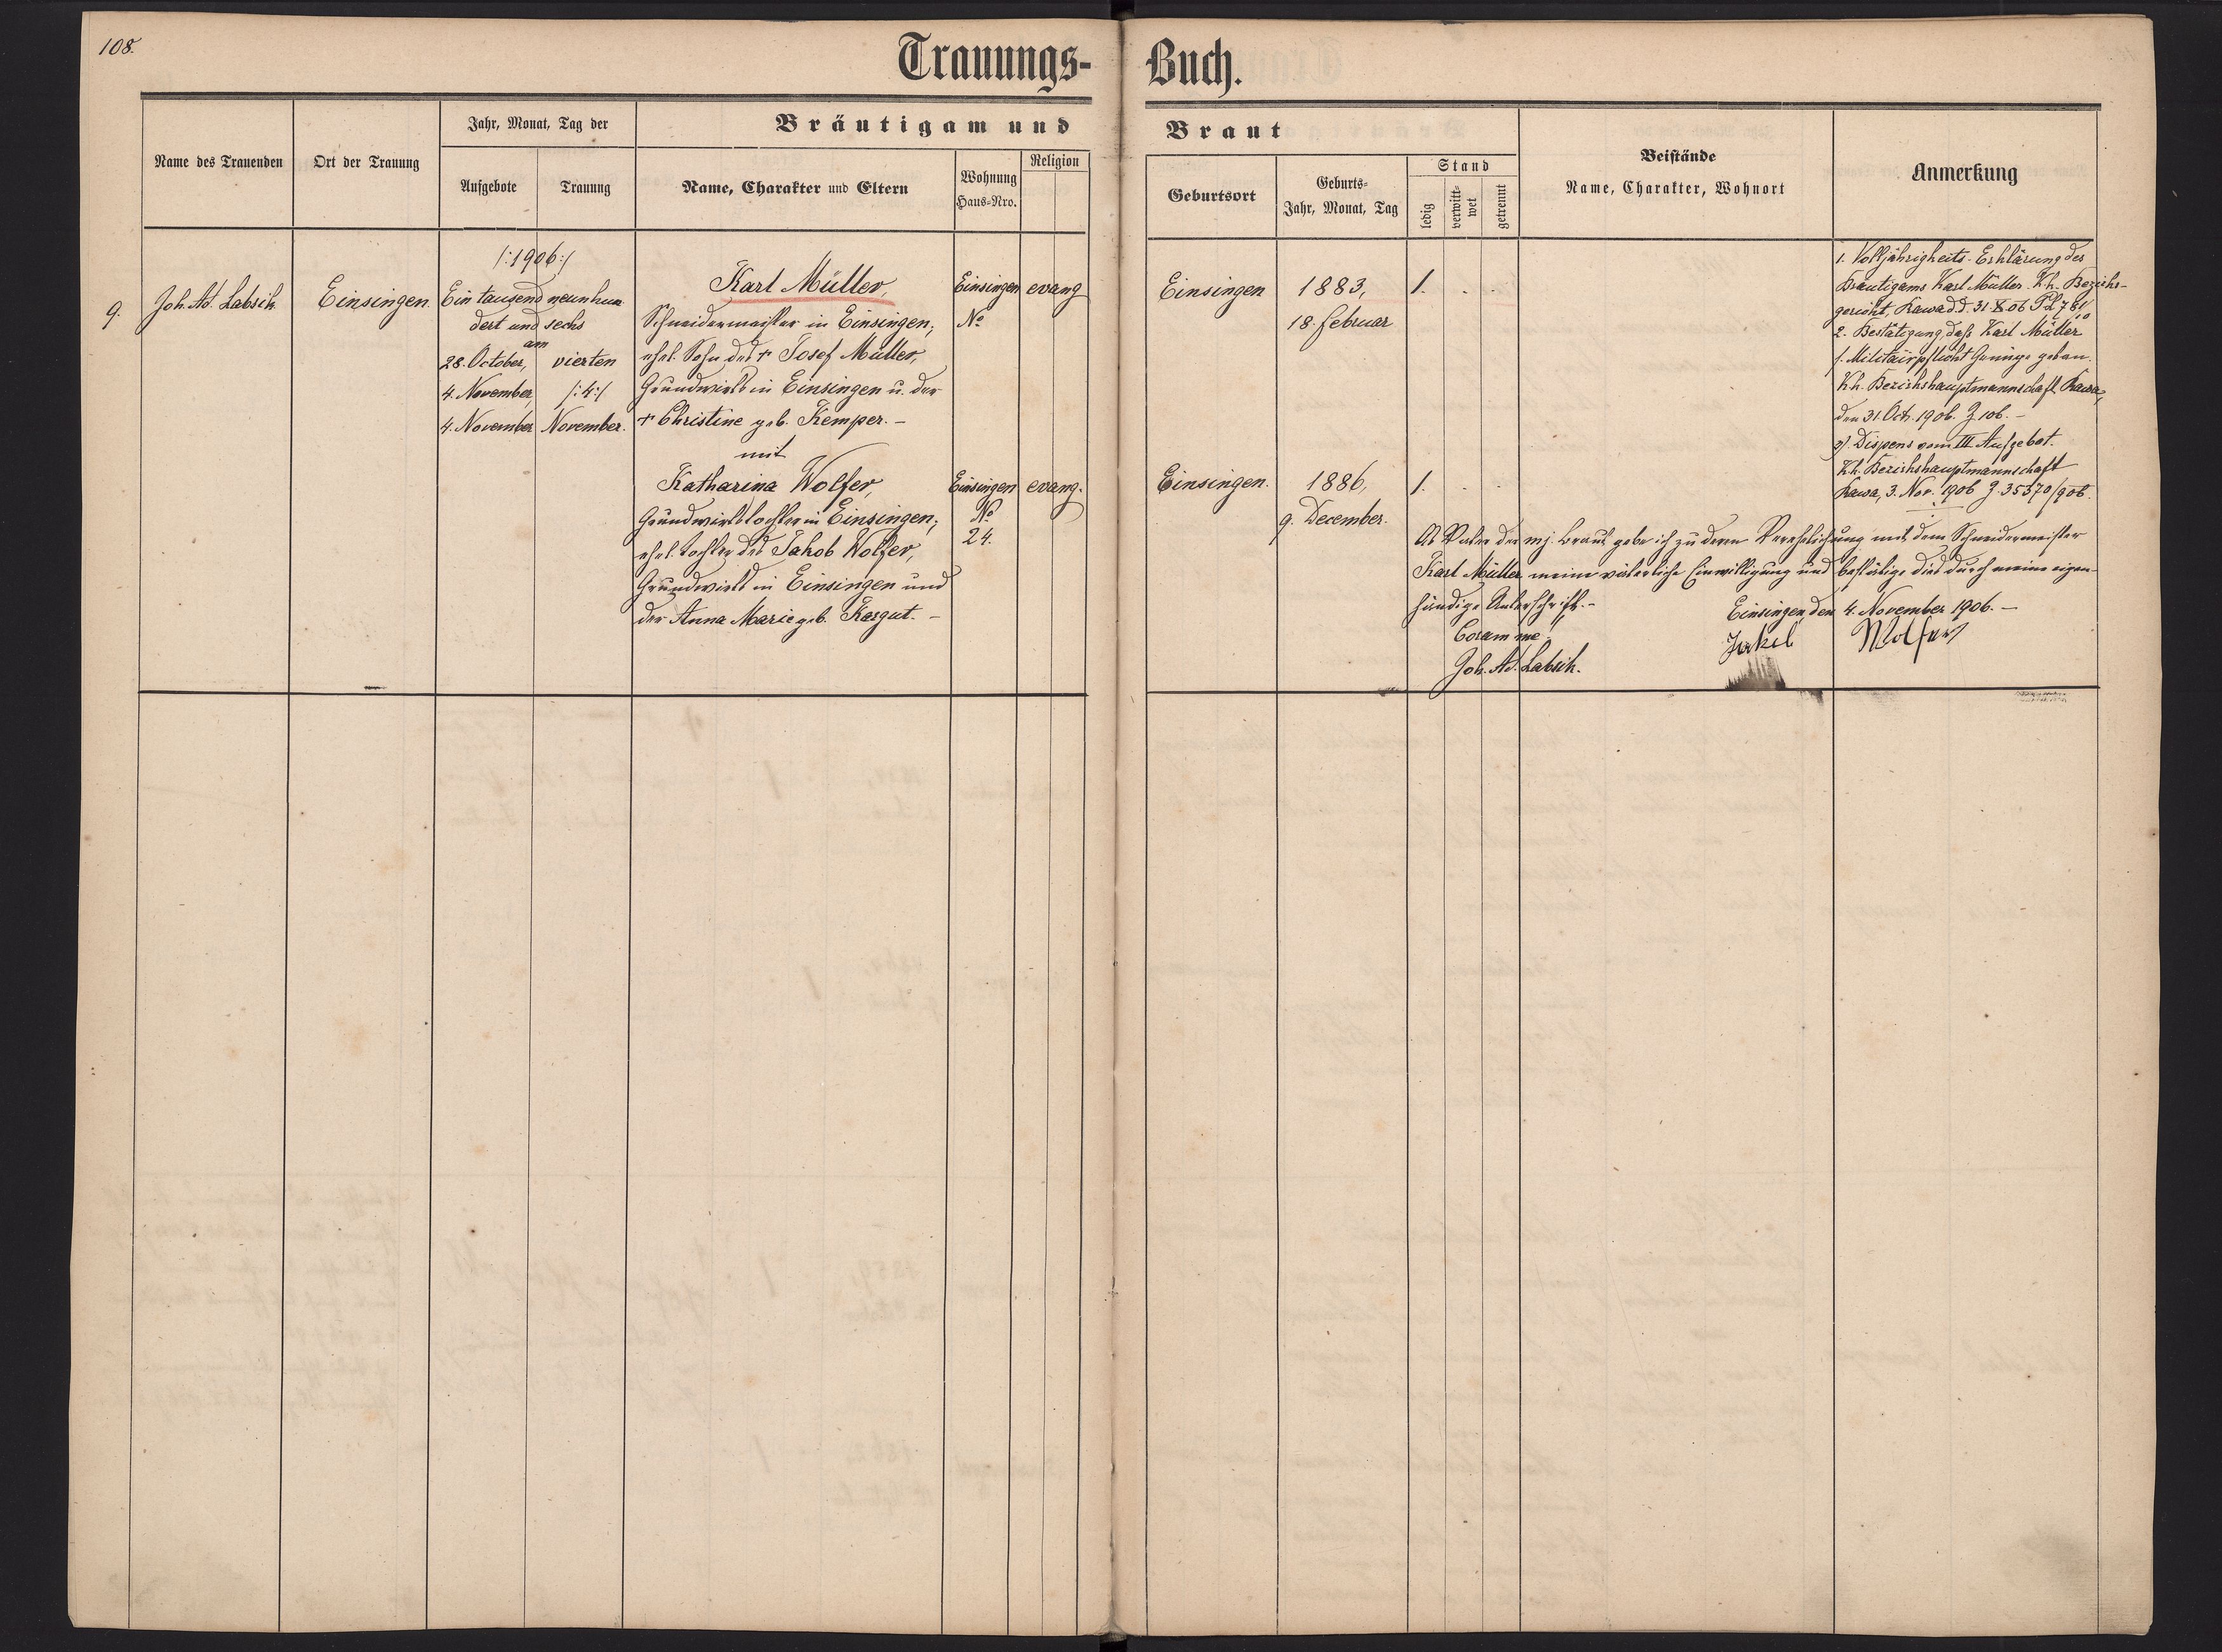 108.
Trauungs-
Buch.
Name des Trauenden
Ort der Trauung
Jahr, Monat, Tag der
Aufgebote
Trauung
Bräutigam und
Name, Charakter und Eltern
Wohnung
Haus-Nro.
Religion
Braut
Geburtsort
Geburts-
Jahr, Monat, Tag
Stand
ledig
verwitt-
wet
getrennt
Beistände
Name, Charakter, Wohnort
Anmerkung
9.
Joh. Ad. Labsik
Einsingen.
/:1906:/
Ein tausend neunhun
dert und sechs
am
28. October,
4. November,
4. November
vierten
/:4:/
November.
Karl Müller,
Schneidermeister in Einsingen,
ehel. Sohn des + Josef Müller,
Grundwirth in Einsingen u. der
+ Christine geb. Kemper. –
Einsingen
No
evang
Einsingen
1883,
18. Februar
1. . .
mit
Katharina Wolfer,
Grundwirthstochter in Einsingen,
ehel. Tochter des Jakob Wolfer,
Grundwirth in Einsingen und
der Anna Marie geb. Kargut. –
Einsingen
No
24.
evang.
Einsingen.
1886,
9. December.
1. . .
1. Volljährigkeits-Erklärung des
Bräutigams Karl Müller. K.k. Bezirks-
gericht, Rawa d.d. 31. X. 06
2. Bestätigung, dass Karl Müller
s. Militairpflicht Genüge gethan.
K.k. Bezirkshauptmannschaft Rawa,
den 31. Oct. 1906. Z. 106. –
3/ Dispens vom III Aufgebot.
K.k. Bezirkshauptmannschaft
Rawa, 3. Nov. 1906 Z. 35370/906.
Als Vater der mj. Braut gebe ich zu deren Verehelichung mit dem Schneidermeister
Karl Müller meine väterliche Einwilligung und bestätige dies durch meine eigen-
händige Unterschrift. –
Einsingen, den 4. November 1906. –
Coram me:
Joh. Ad. Labsik.
Jakob Wolfer